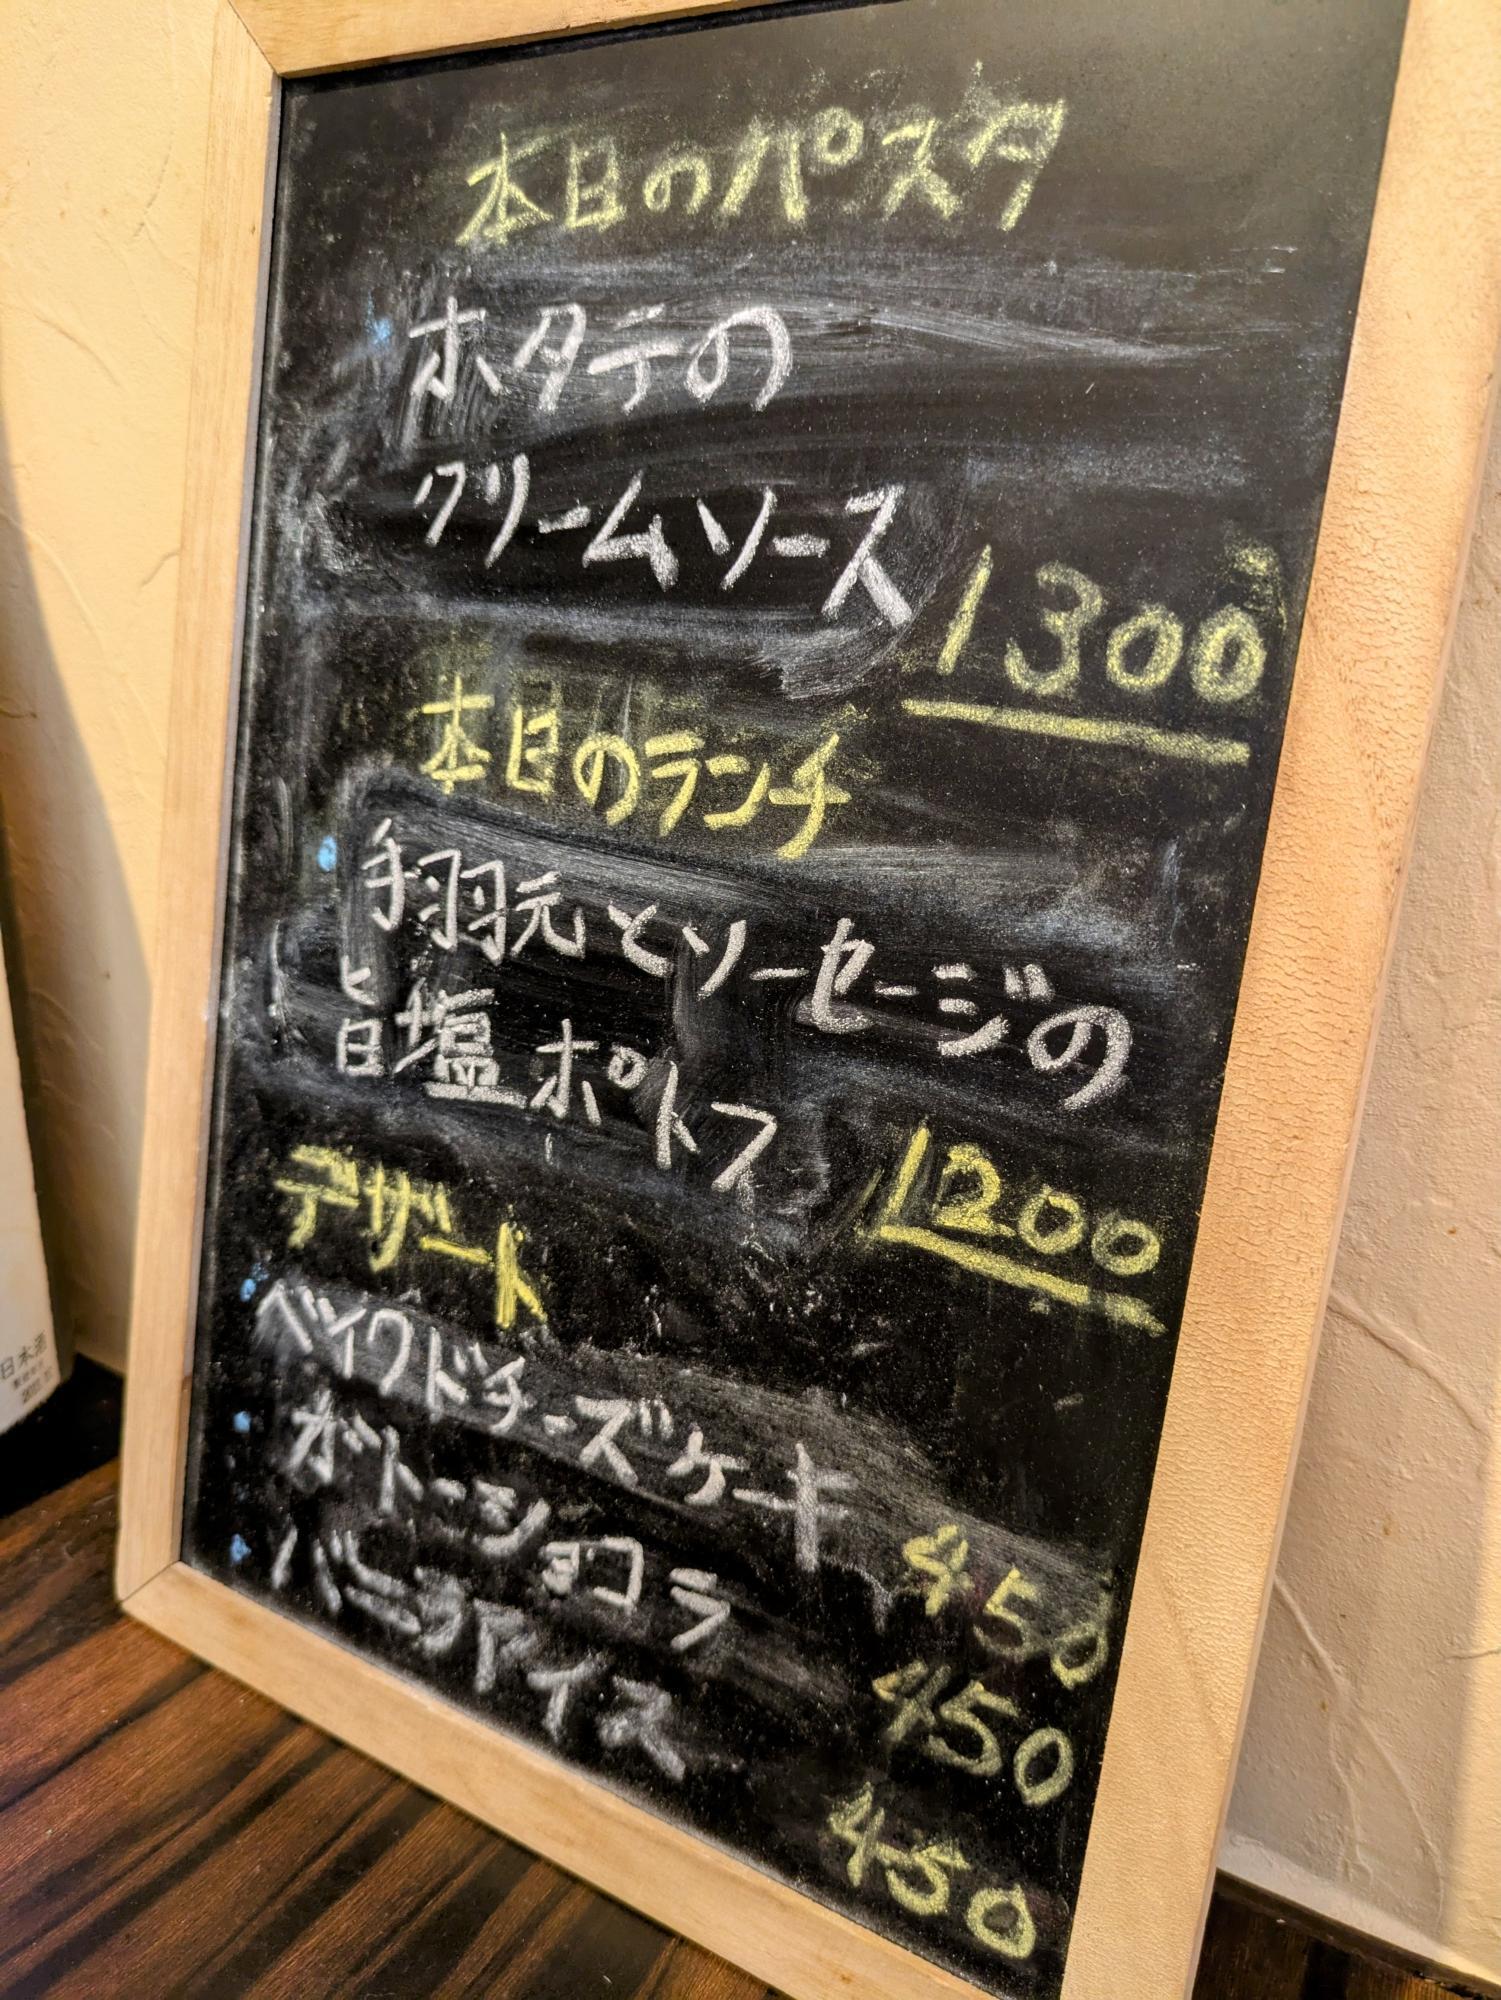 本日のパスタ
ホタテの
クリームソース
1300
本日のランチ
手羽元とソーセージの
旨塩ポトフ
1200
デザート
ベイクドチーズケーキ 450
ガトーショコラ 450
バニラアイス 450
日水道